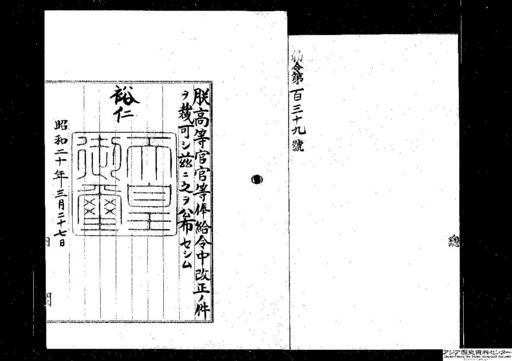 勅令第百三十九號
朕高等官官等俸給令中改正ノ件
ヲ裁可シ茲ニ之ヲ公布セシム
裕仁
天皇御璽
昭和二十年三月二十七日
内閣
アジア歴史資料センター